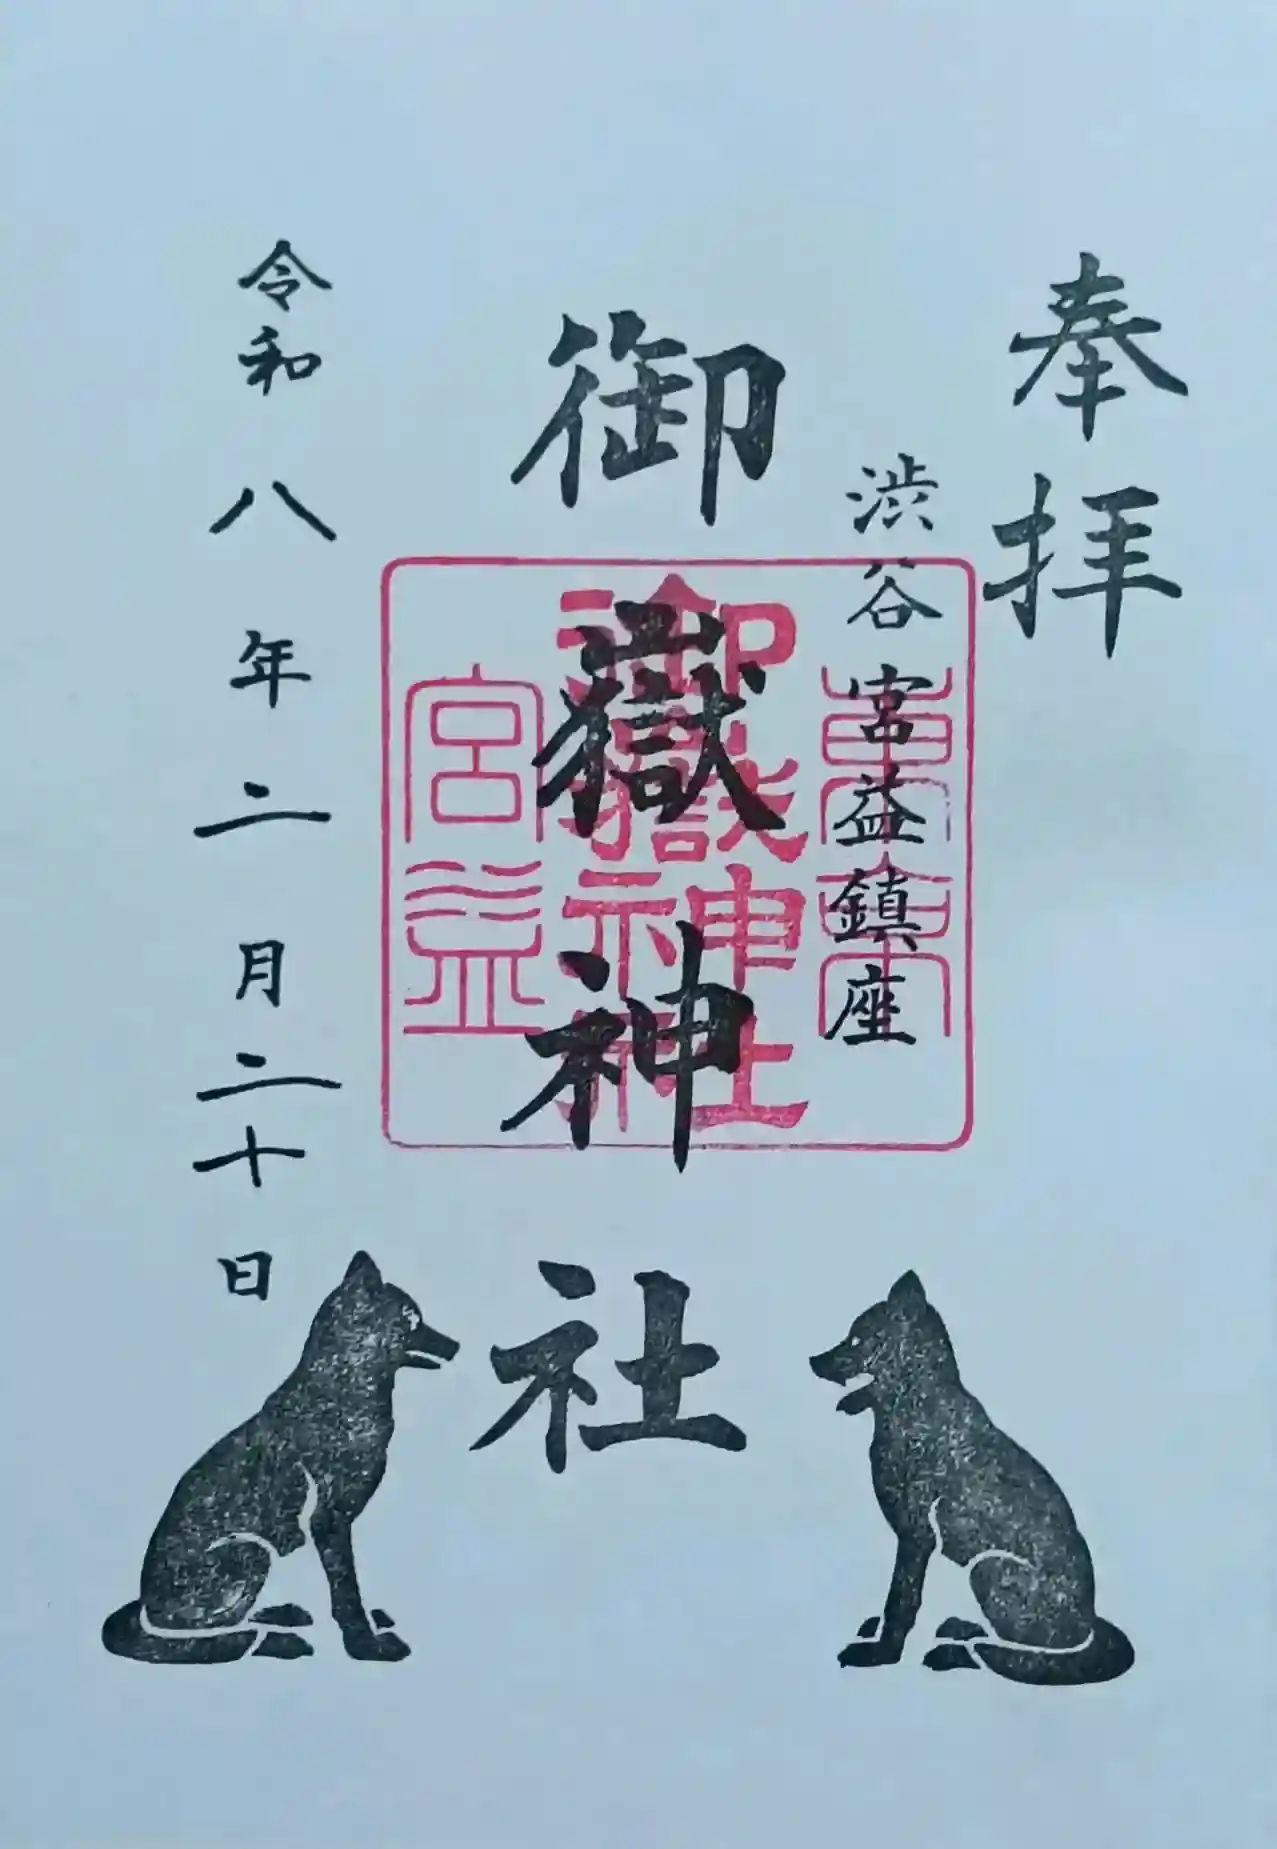 奉拝
渋谷宮益鎮座
御嶽神社
東京
御嶽神社
宮益
令和八年二月二十日